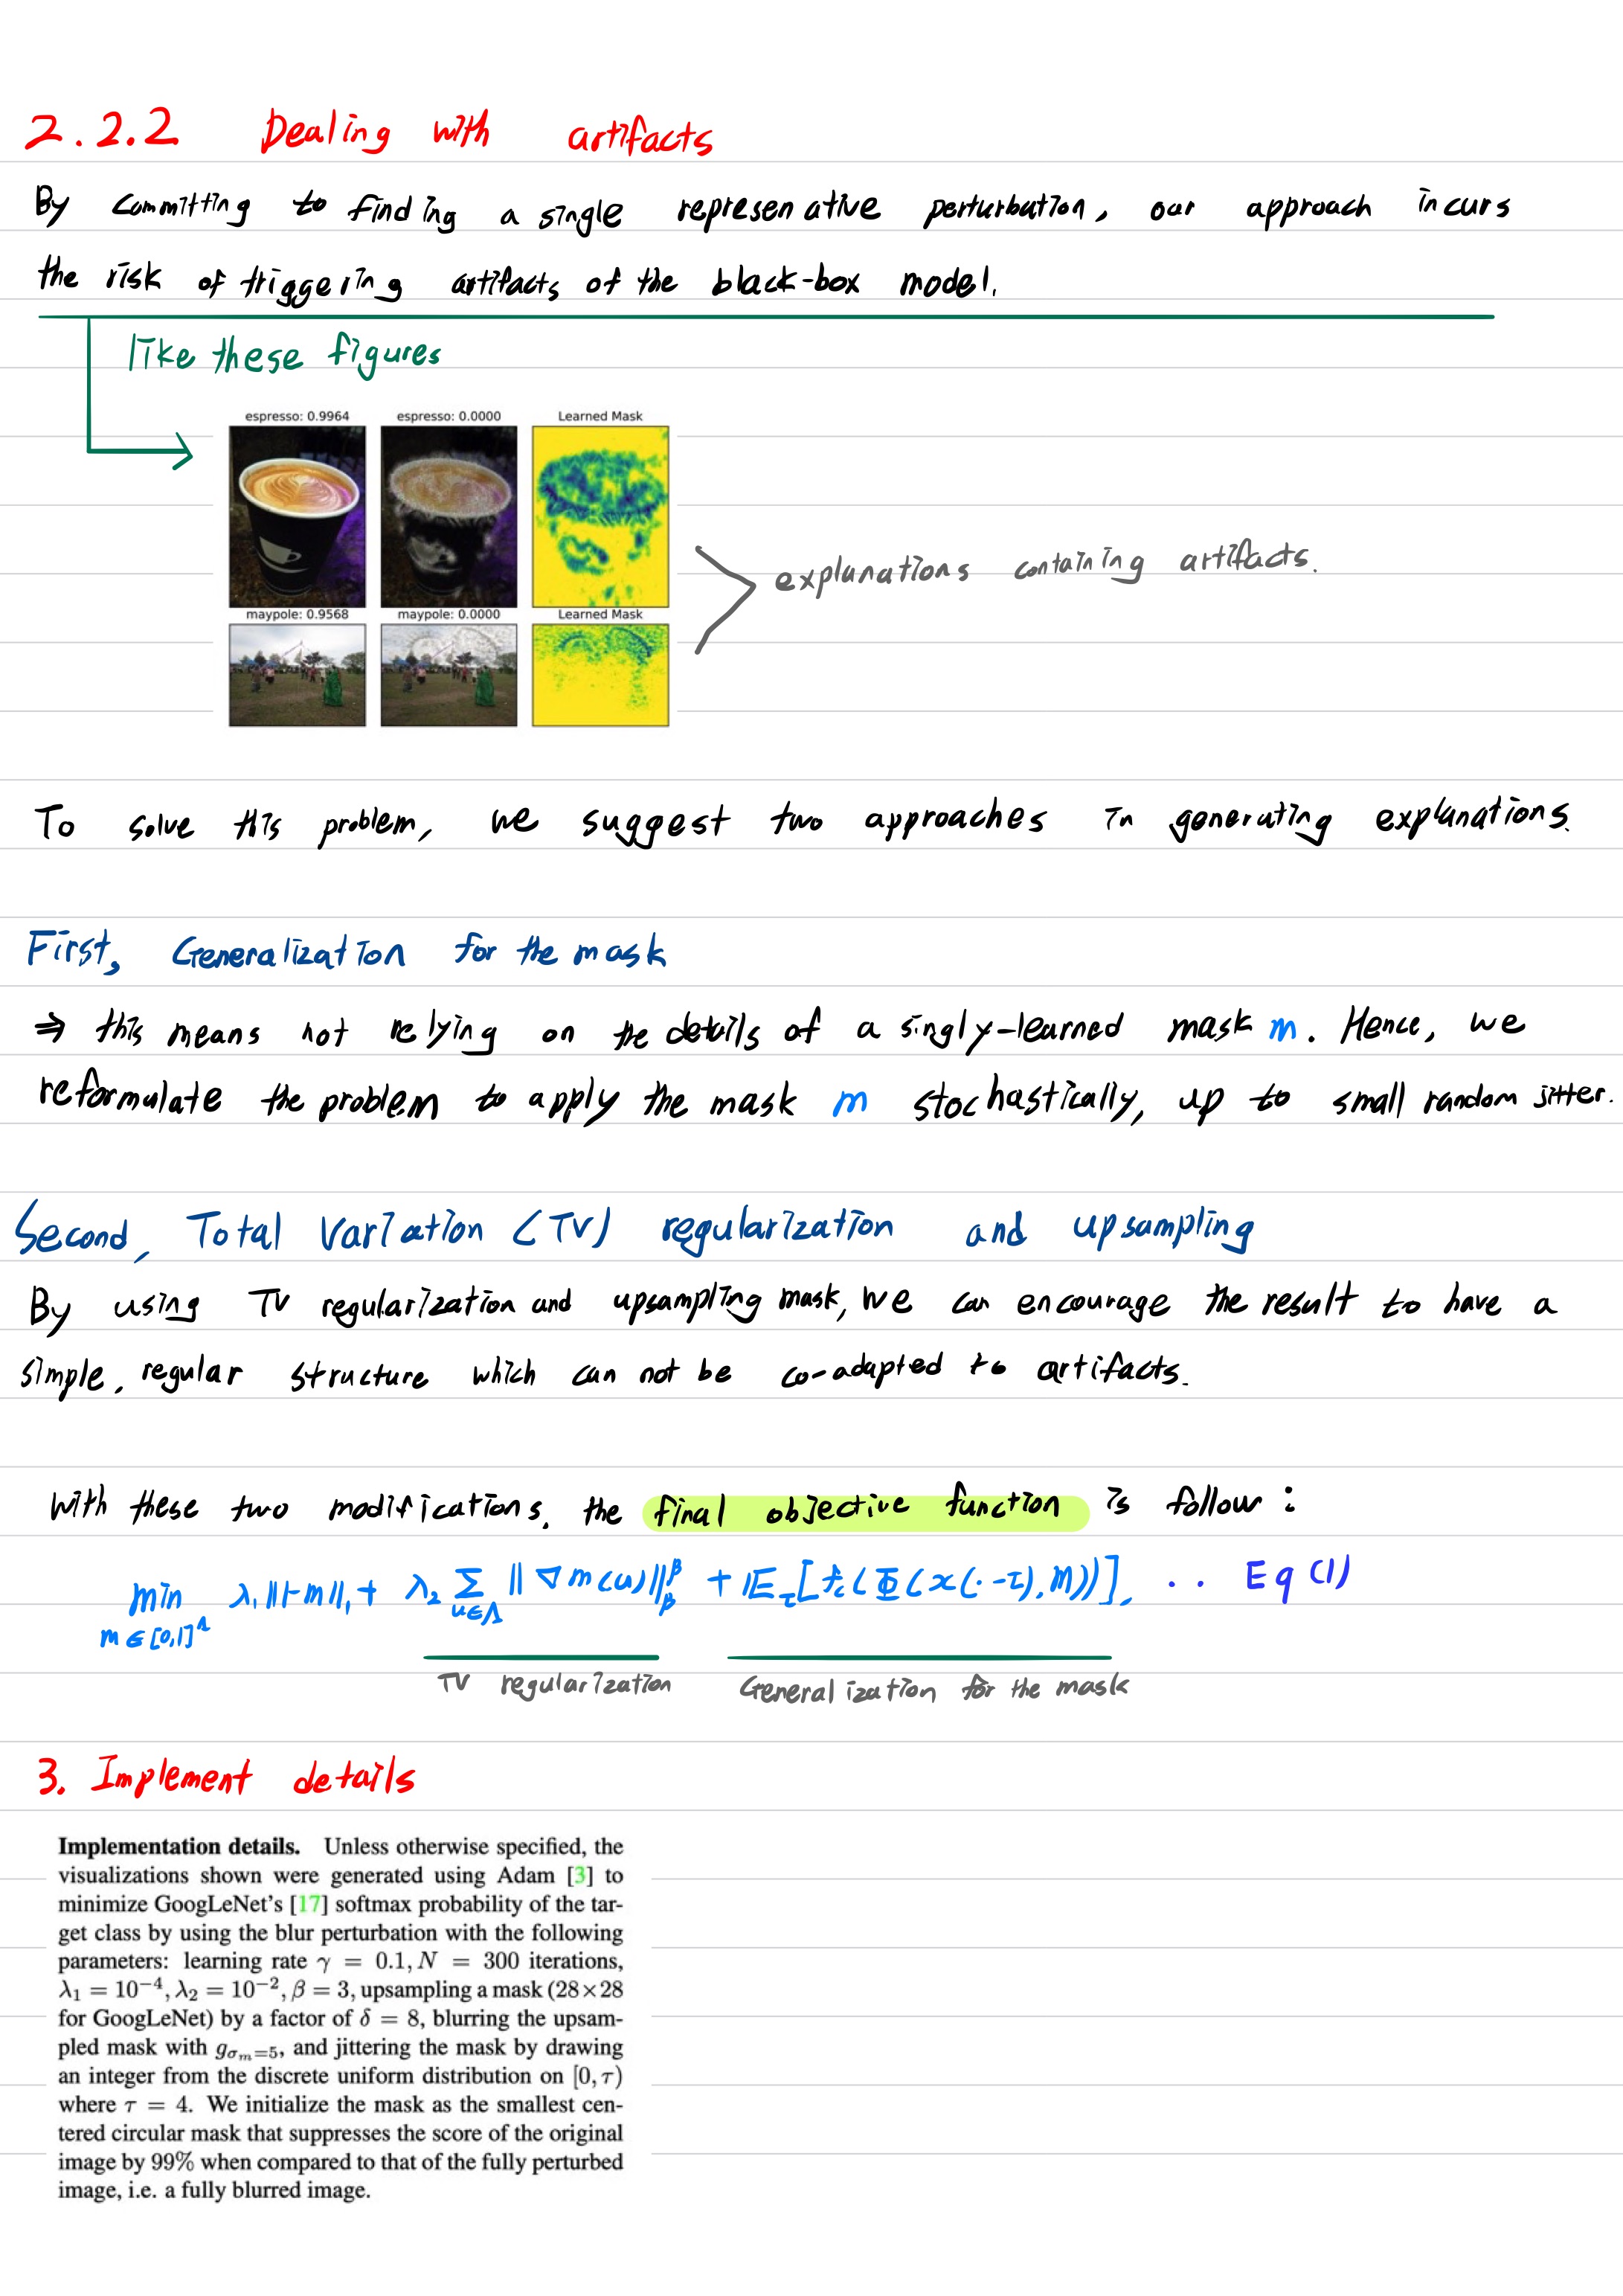 2.2.2 Dealing with artifacts
By committing to finding a single represenative perturbation, our approach incurs
the risk of triggering artifacts of the black-box model.
like these figures
espresso: 0.9964 espresso: 0.0000 Learned Mask
explanations containing artifacts.
maypole: 0.9568 maypole: 0.0000 Learned Mask
To solve this problem, we suggest two approaches in generating explanations.
First, Generalization for the mask
⇒ this means not relying on the details of a singly-learned mask m. Hence, we
reformulate the problem to apply the mask m stochastically, up to small random jitter.
Second, Total Variation (TV) regularization and upsampling
By using TV regularization and upsampling mask, we can encourage the result to have a
simple, regular structure which can not be co-adapted to artifacts.
With these two modifications, the final objective function is follow :
min λ₁‖1-m‖₁ + λ₂ Σ ‖∇m(u)‖^β_β + 𝔼_τ[f_c(Φ(x(·-τ), m))], .. Eq (1)
m∈[0,1]^Λ u∈Λ
TV regularization Generalization for the mask
3. Implement details
Implementation details. Unless otherwise specified, the
visualizations shown were generated using Adam [3] to
minimize GoogLeNet's [17] softmax probability of the tar-
get class by using the blur perturbation with the following
parameters: learning rate γ = 0.1, N = 300 iterations,
λ₁ = 10⁻⁴, λ₂ = 10⁻², β = 3, upsampling a mask (28×28
for GoogLeNet) by a factor of δ = 8, blurring the upsam-
pled mask with g_{σ_m=5}, and jittering the mask by drawing
an integer from the discrete uniform distribution on [0, τ)
where τ = 4. We initialize the mask as the smallest cen-
tered circular mask that suppresses the score of the original
image by 99% when compared to that of the fully perturbed
image, i.e. a fully blurred image.